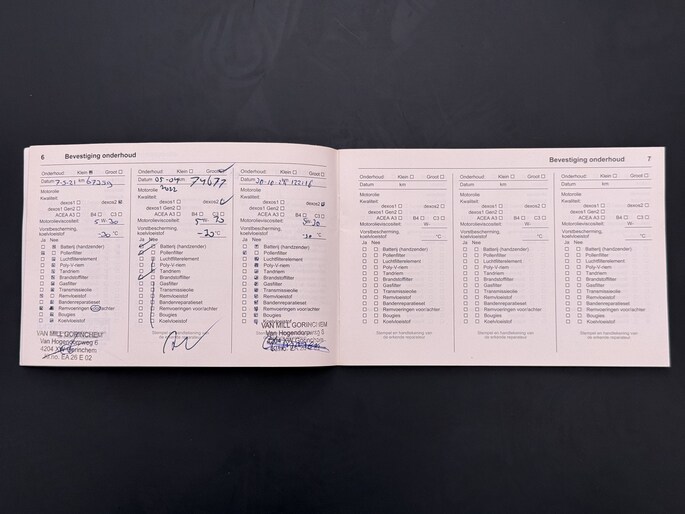 6 Bevestiging onderhoud
Onderhoud: Klein Groot
Datum 7-5-21 km 67239
Motorolie
Kwaliteit:
dexos1 dexos2
dexos1 Gen2
ACEA A3 B4 C3
Motorolieviscositeit: 5 W-30
Vorstbescherming,
koelvloeistof -30 °C
Ja Nee
Batterij (handzender)
Pollenfilter
Luchtfilterelement
Poly-V-riem
Tandriem
Brandstoffilter
Gasfilter
Transmissieolie
Remvloeistof
Bandenreparatieset
Remvoeringen voor/achter
Bougies
Koelvloeistof
VAN MILL GORINCHEM
Van Hogendorpweg 6
4204 XW Gorinchem
EA 26 E 02
Onderhoud: Klein Groot
Datum 05-04 km 74677
Motorolie 2022
Kwaliteit:
dexos1 dexos2
dexos1 Gen2
ACEA A3 B4 C3
Motorolieviscositeit: 5 W-30
Vorstbescherming,
koelvloeistof -30 °C
Ja Nee
Batterij (handzender)
Pollenfilter
Luchtfilterelement
Poly-V-riem
Tandriem
Brandstoffilter
Gasfilter
Transmissieolie
Remvloeistof
Bandenreparatieset
Remvoeringen voor/achter
Bougies
Koelvloeistof
Onderhoud: Klein Groot
Datum
Motorolie
Kwaliteit:
dexos1 dexos2
dexos1 Gen2
ACEA A3 B4 C3
Motorolieviscositeit: W-30
Vorstbescherming,
koelvloeistof -30 °C
Ja Nee
Batterij (handzender)
Pollenfilter
Luchtfilterelement
Poly-V-riem
Tandriem
Brandstoffilter
Gasfilter
Transmissieolie
Remvloeistof
Bandenreparatieset
Remvoeringen voor/achter
Bougies
Koelvloeistof
VAN MILL GORINCHEM
Van Hogendorpweg 6
Bevestiging onderhoud 7
Onderhoud: Klein Groot
Datum km
Motorolie
Kwaliteit:
dexos1 dexos2
dexos1 Gen2
ACEA A3 B4 C3
Motorolieviscositeit: W-
Vorstbescherming,
koelvloeistof °C
Ja Nee
Batterij (handzender)
Pollenfilter
Luchtfilterelement
Poly-V-riem
Tandriem
Brandstoffilter
Gasfilter
Transmissieolie
Remvloeistof
Bandenreparatieset
Remvoeringen voor/achter
Bougies
Koelvloeistof
Stempel en handtekening van
de erkende reparateur
Onderhoud: Klein Groot
Datum km
Motorolie
Kwaliteit:
dexos1 dexos2
dexos1 Gen2
ACEA A3 B4 C3
Motorolieviscositeit: W-
Vorstbescherming,
koelvloeistof °C
Ja Nee
Batterij (handzender)
Pollenfilter
Luchtfilterelement
Poly-V-riem
Tandriem
Brandstoffilter
Gasfilter
Transmissieolie
Remvloeistof
Bandenreparatieset
Remvoeringen voor/achter
Bougies
Koelvloeistof
Stempel en handtekening van
de erkende reparateur
Onderhoud: Klein Groot
Datum km
Motorolie
Kwaliteit:
dexos1 dexos2
dexos1 Gen2
ACEA A3 B4 C3
Motorolieviscositeit: W-
Vorstbescherming,
koelvloeistof °C
Ja Nee
Batterij (handzender)
Pollenfilter
Luchtfilterelement
Poly-V-riem
Tandriem
Brandstoffilter
Gasfilter
Transmissieolie
Remvloeistof
Bandenreparatieset
Remvoeringen voor/achter
Bougies
Koelvloeistof
Stempel en handtekening van
de erkende reparateur